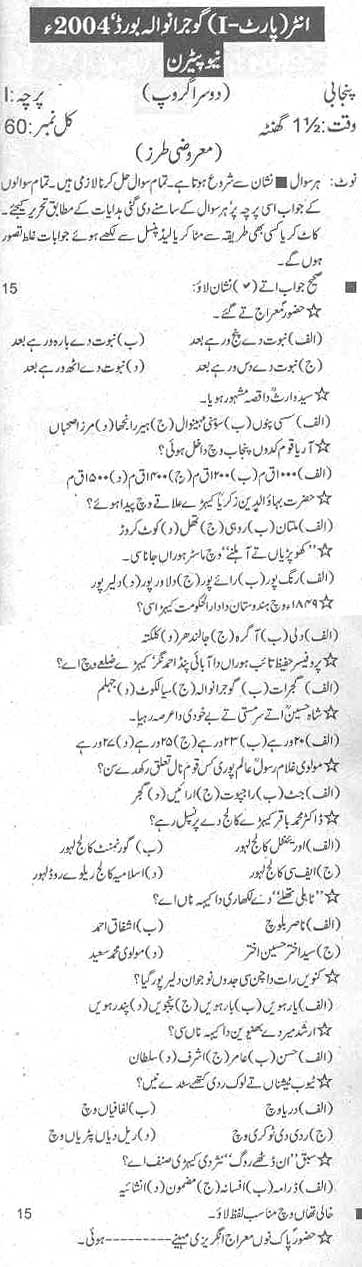 انٹر (پارٹ-I) گوجرانوالہ بورڈ ‘2004ء
نیو پیٹرن
پنجابی (دوسرا گروپ) پرچہ: I
وقت: 1½ گھنٹہ کل نمبر: 60
(معروضی طرز)
نوٹ: ہر سوال ■ نشان سے شروع ہوتا ہے۔ تمام سوال حل کرنا لازمی ہیں۔ تمام سوالوں
کے جواب اسی پرچہ پر ہر سوال کے سامنے دی گئی ہدایات کے مطابق تحریر کیجئے۔
کاٹ کر یا کسی بھی طریقہ سے مٹا کر یا لیڈ پنسل سے لکھے ہوئے جوابات غلط تصور
ہوں گے۔
■ صحیح جواب اتے (✓) نشان لاؤ: 15
☆ حضورؐ معراج تے گئے۔
(الف) نبوت دے پنج ورہے بعد (ب) نبوت دے بارہ ورہے بعد
(ج) نبوت دے دس ورہے بعد (د) نبوت دے اٹھ ورہے بعد
☆ سید وارثؒ دا قصہ مشہور ہویا۔
(الف) سسی پنوں (ب) سوہنی مہینوال (ج) ہیر رانجھا (د) مرزا صحباں
☆ آریا قوم کدوں پنجاب وچ داخل ہوئی؟
(الف) ۱۰۰۰ق م (ب) ۱۲۰۰ق م (ج) ۱۴۰۰ق م (د) ۱۵۰۰ق م
☆ حضرت بہاؤالدین زکریاؒ کیہڑے علاقے وچ پیدا ہوئے؟
(الف) ملتان (ب) روہی (ج) تھل (د) کوٹ کروڑ
☆ ’’کھوپڑیاں تے آہلنے‘‘ وچ ماسٹر ہوراں جاناسی۔
(الف) رنگ پور (ب) رائے پور (ج) دلاور پور (د) دلیر پور
☆ ۱۸۴۹ء وچ ہندوستان دا دارالحکومت کیہڑا سی؟
(الف) دلی (ب) آگرہ (ج) جالندھر (د) کلکتہ
☆ پروفیسر حفیظ تائب ہوراں دا آبائی پنڈ احمد نگر کیہڑے ضلعے وچ اے؟
(الف) گجرات (ب) گوجرانوالہ (ج) سیالکوٹ (د) جہلم
☆ شاہ حسینؒ اتے سرمستی تے بے خودی دا عرصہ رہیا۔
(الف) ۲۰ورہے (ب) ۲۳ورہے (ج) ۲۵ورہے (د) ۲۷ورہے
☆ مولوی غلام رسولؒ عالم پوری کس قوم نال تعلق رکھدے سن؟
(الف) جٹ (ب) راجپوت (ج) ارائیں (د) گجر
☆ ڈاکٹر محمد باقر کیہڑے کالج دے پرنسپل رہے؟
(الف) اورینٹل کالج لہور (ب) گورنمنٹ کالج لہور
(ج) ایف سی کالج لہور (د) اسلامیہ کالج ریلوے روڈ لہور
☆ ’’ٹاہلی تھلے‘‘ دے لکھاری دا کیہہ ناں اے؟
(الف) ناصر بلوچ (ب) اشفاق احمد
(ج) سید اختر حسین اختر (د) مولوی محمد سعید
☆ کنویں رات دا چن سی جدوں نوجوان دلیر پور گیا؟
(الف) یارہویں (ب) بارہویں (ج) پنجویں (د) پندرہویں
☆ ارشد میر دے بھنیویں دا کیہہ ناں سی؟
(الف) حسن (ب) عامر (ج) اشرف (د) سلطان
☆ ٹیوب ٹیشناں تے لوک ردی کتھے سٹدے نیں؟
(الف) دریا وچ (ب) لفافیاں وچ
(ج) ردی دی ٹوکری وچ (د) ریل دیاں پٹریاں وچ
☆ سبق ’’ان ڈٹھے روگ‘‘ نثر دی کیہڑی صنف اے؟
(الف) ڈرامہ (ب) افسانہ (ج) مضمون (د) انشائیہ
■ خالی تھاں وچ مناسب لفظ لاؤ۔ 15
☆ حضورؐ پاک نوں معراج انگریزی مہینے ---------- ہوئی۔